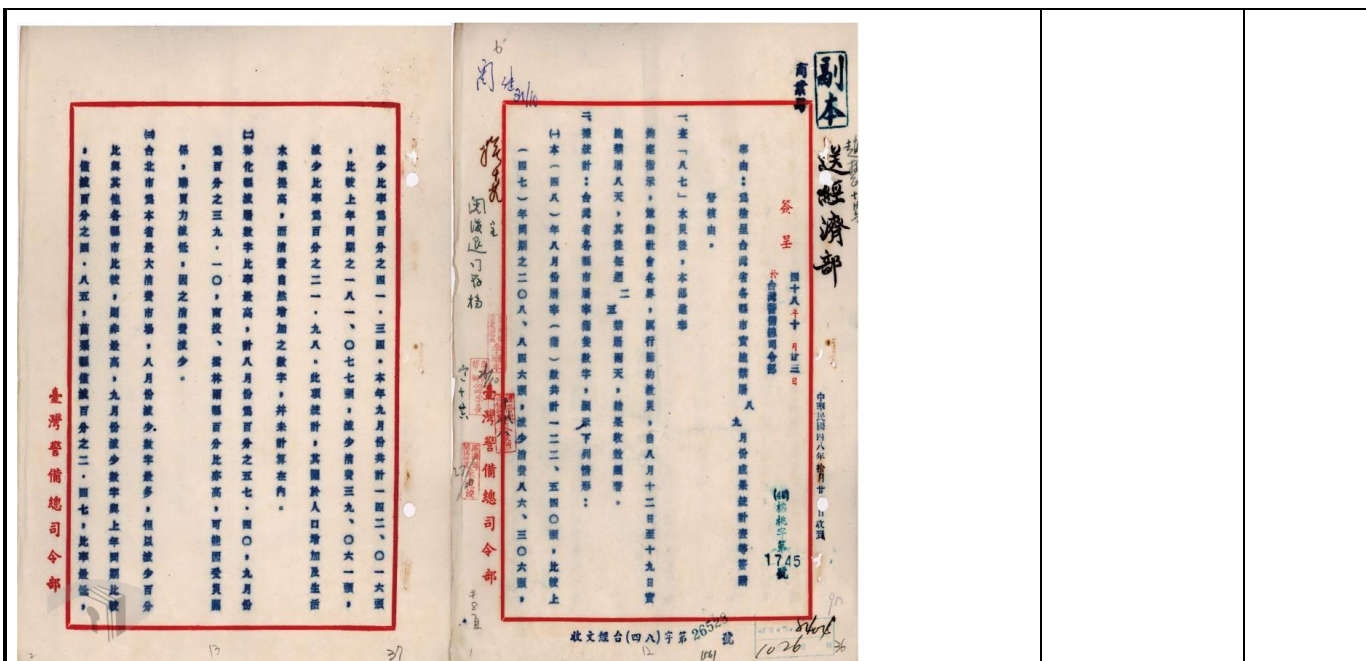 副本
商業司
送經濟部
簽呈
四十八年十月廿三日
於台灣警備總司令部
中華民國四八年拾月廿 日收到
(48)
1745號
事由：爲檢呈台灣省各縣市實施禁屠八九月份成果統計表等簽請
督核由。
一、查「八七」水災後，本部遵奉
鈞座指示，發動社會各界，厲行節約救災，自八月十二日至十九日實
施禁屠八天，其後每週二五禁屠兩天，結果收效頗著。
二、據統計：台灣省各縣市屠宰豬隻數字，顯示下列情形：
㈠本（四八）年八月份屠宰（豬）數共計一二二、五四〇頭，比較上
（四七）年同期之二〇八、八四六頭，減少消費八六、三〇六頭，
臺灣警備總司令部
收文經台(四八)字第26529號
12
36
減少比率爲百分之四一．三四。本年九月份共計一四二、〇一六頭
，比較上年同期之一八一、〇七七頭，減少消費三九、〇六一頭，
減少比率爲百分之二一．九八。此項統計，其關於人口增加及生活
水準提高，而消費自然增加之數字，并未計算在內。
㈡彰化縣減屠數字比率最高，計八月份爲百分之五七．四〇，九月份
爲百分之三九．一〇，南投、雲林兩縣百分比亦高，可能因受災關
係，購買力減低，因之消費減少。
㈢台北市爲本省最大消費市場，八月份減少數字最多，但以減少百分
比與其他各縣市比較，則非最高，九月份減少數字與上年同期比較
，僅減百分之四．八五，苗栗縣僅減百分之二．四七，比率最低，
臺灣警備總司令部
2
13
37